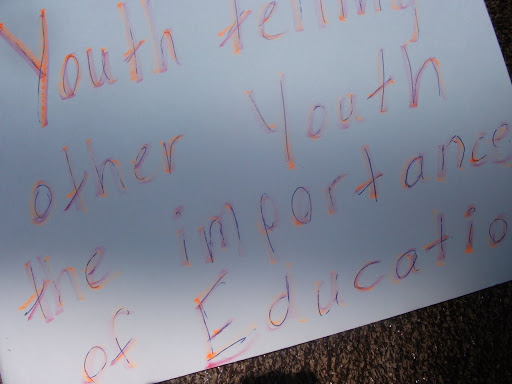 Youth telling
other Youth
the importance
of Educatio